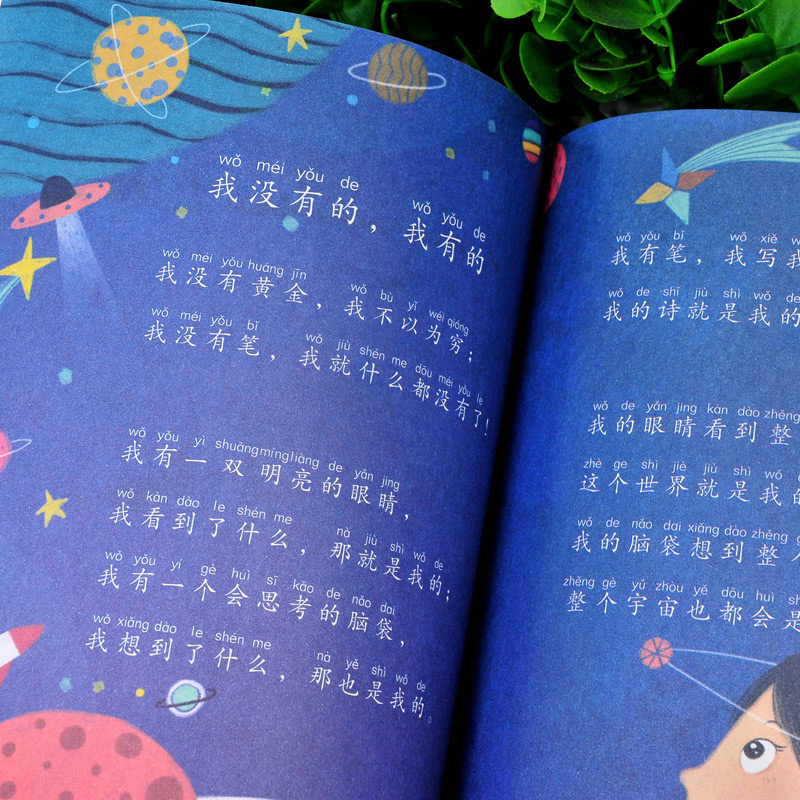 wǒ méi yǒu de wǒ yǒu de
我没有的，我有的
wǒ méi yǒu huáng jīn wǒ bù yǐ wéi qióng
我没有黄金，我不以为穷；
wǒ méi yǒu bǐ wǒ jiù shén me dōu méi yǒu le
我没有笔，我就什么都没有了！
wǒ yǒu yì shuāng míng liàng de yǎn jing
我有一双明亮的眼睛，
wǒ kàn dào le shén me nà jiù shì wǒ de
我看到了什么，那就是我的；
wǒ yǒu yí gè huì sī kǎo de nǎo dai
我有一个会思考的脑袋，
wǒ xiǎng dào le shén me nà yě shì wǒ de
我想到了什么，那也是我的。
wǒ yǒu bǐ wǒ xiě w
我有笔，我写我
wǒ de shī jiù shì wǒ de
我的诗就是我的
wǒ de yǎn jing kàn dào zhěng
我的眼睛看到整
zhè ge shì jiè jiù shì wǒ
这个世界就是我的
wǒ de nǎo dai xiǎng dào zhěng g
我的脑袋想到整个
zhěng gè yǔ zhòu yě dōu huì sh
整个宇宙也都会是